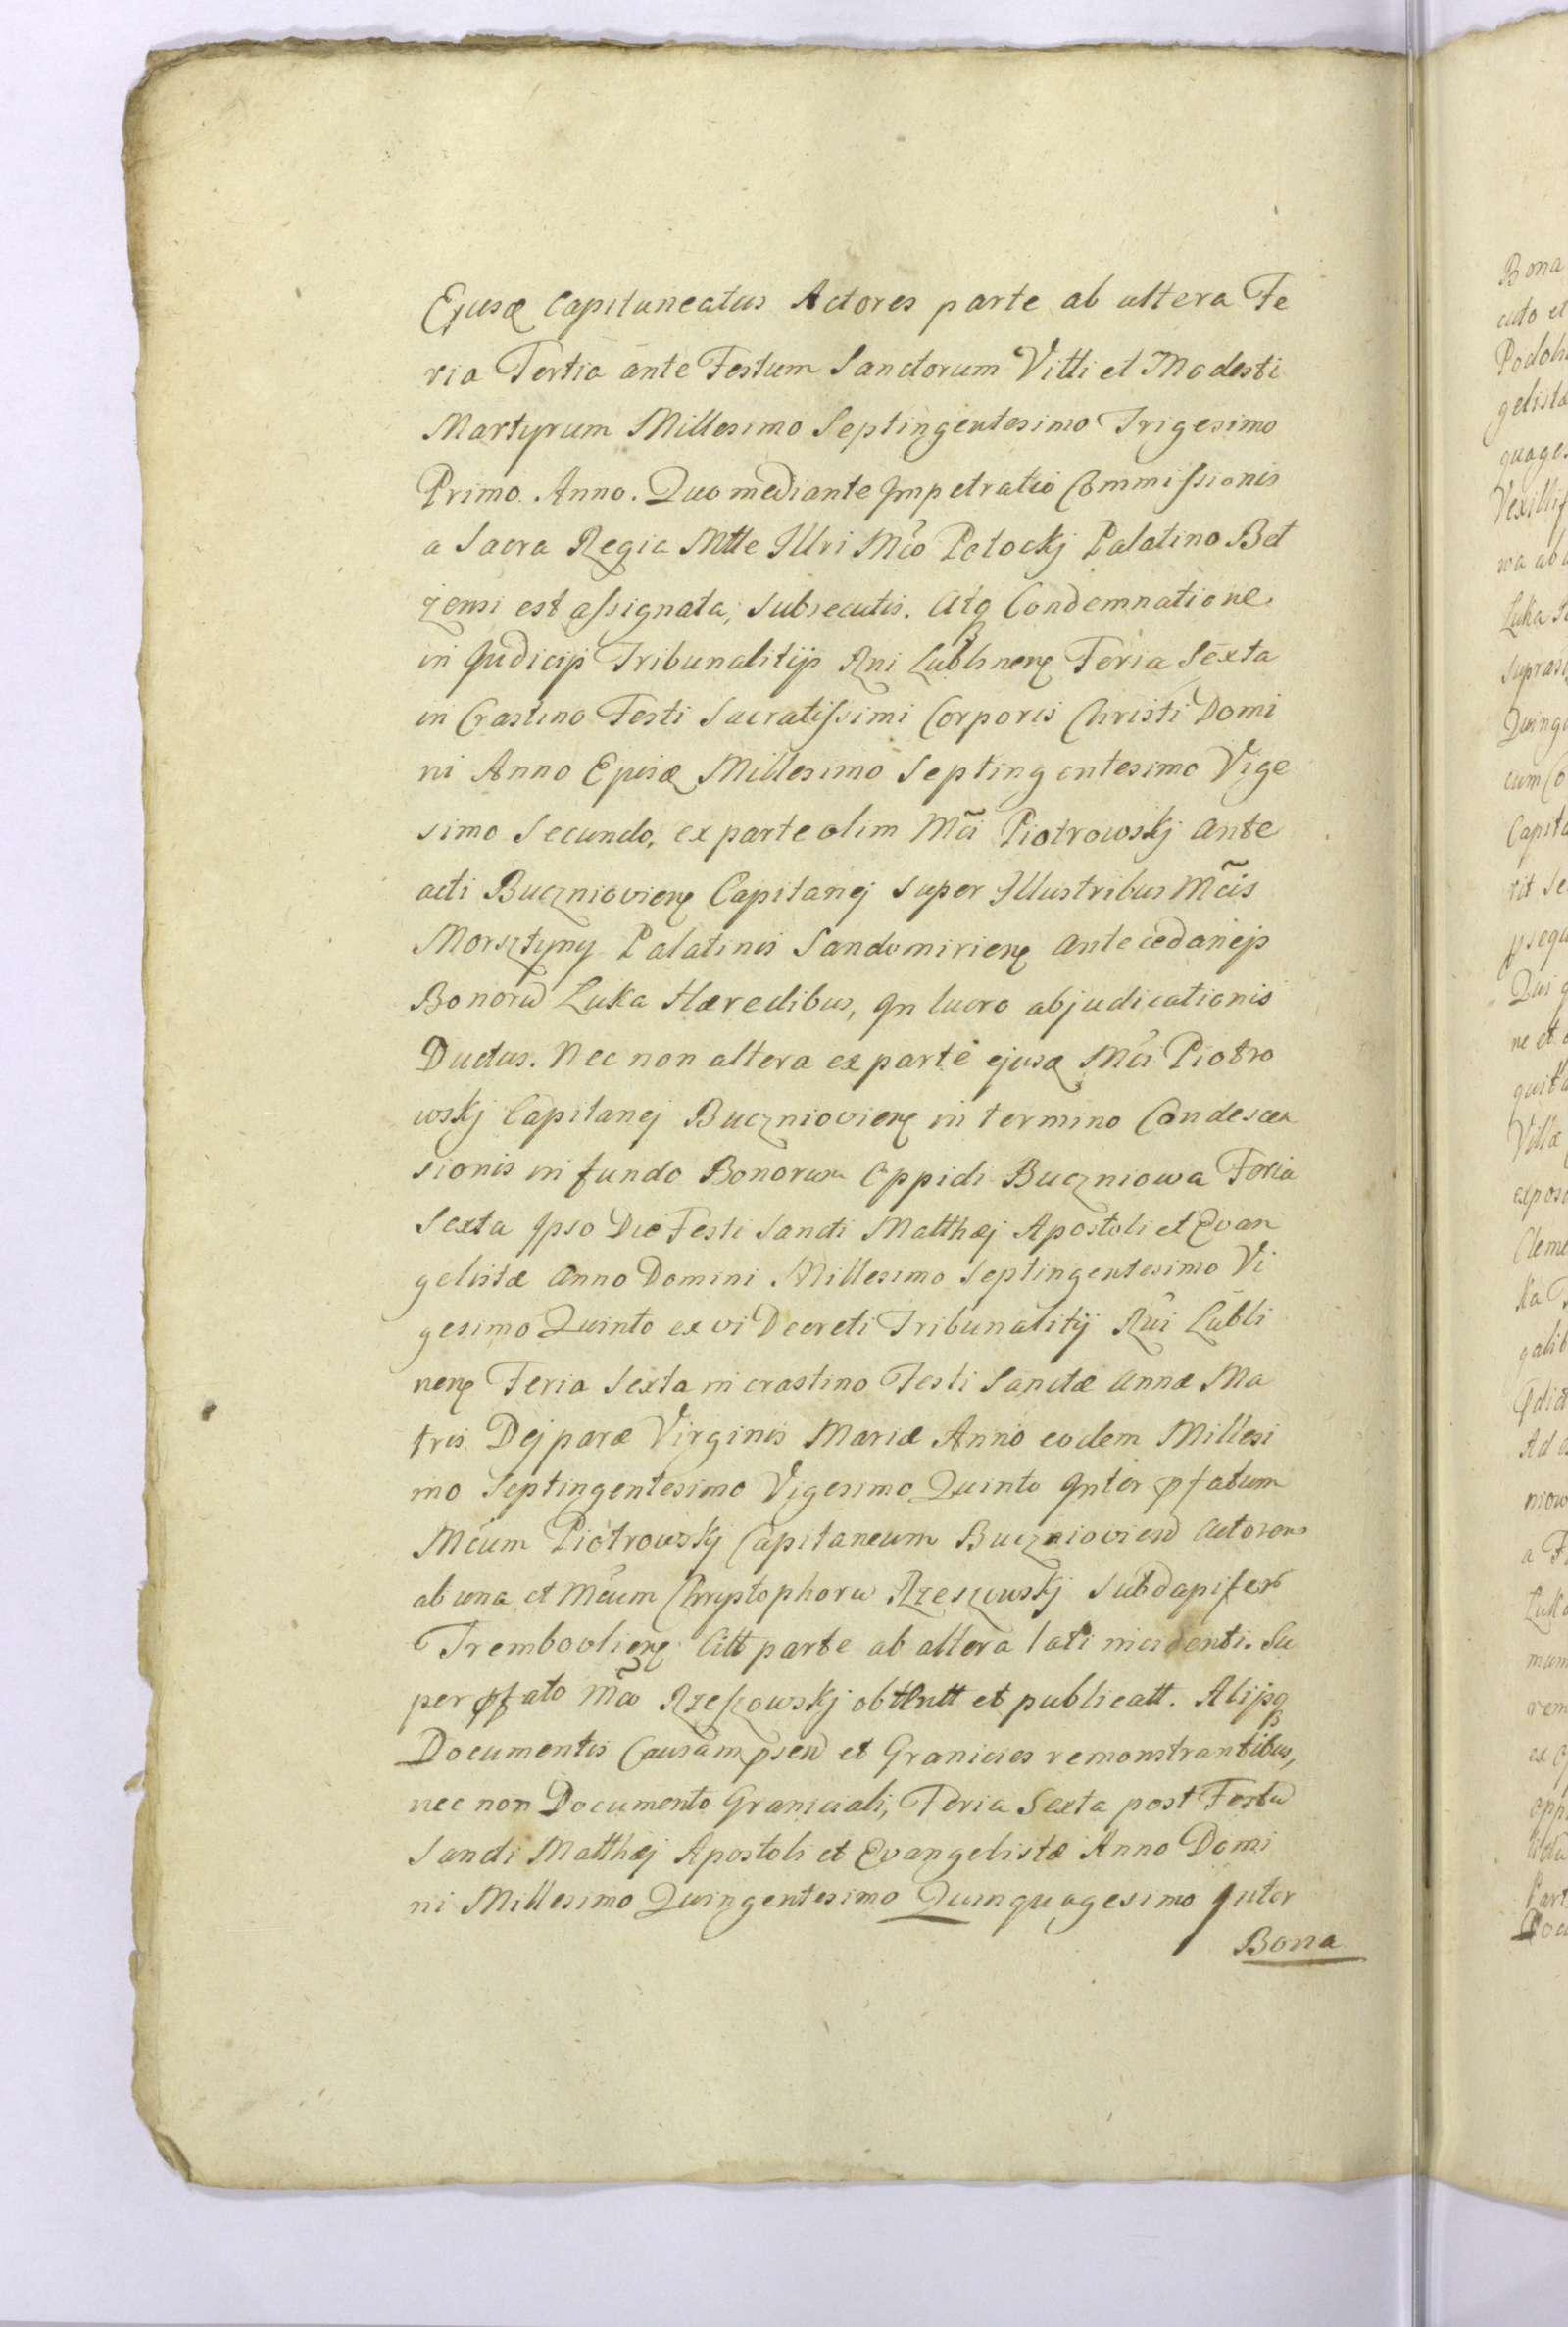 Ejusd Capitaneatus Actores parte ab altera Fe
ria Tertia ante Festum Sanctorum Vitti et Modesti
Martyrum Millesimo Septingentesimo Trigesimo
Primo Anno. Quo mediante Impetratio Commissionis
a Sacra Regia Mtte Illri Mco Potockj Palatino Bel
zensi est assignata, subsecutis. Atq Condemnatione
in Judicijs Tribunalitijs Rni Lublinens Feria Sexta
in Crastino Festi Sacratissimi Corporis Christi Domi
ni Anno Ejusd Millesimo Septingentesimo Vige
simo Secundo, ex parte olim Mci Piotrowskj Ante
acti Buczniowiens Capitanej super Illustribus Mcis
Morsztyny Palatinis Sandomiriens antecedanejs
Bonoru Luka Hæredibus, In lucro abjudicationis
Ductus. Nec non altera ex parte ejusd Mci Piotro
wskj Capitanej Buczniowiens in termino Condescen
sionis in fundo Bonorum Oppidi Buczniowa Feria
Sexta Ipso Die Festi Sancti Matthæj Apostoli et Evan
gelistæ Anno Domini Millesimo Septingentesimo Vi
gesimo Quinto ex vi Decreti Tribunalitij Rni Lubli
nens Feria Sexta in crastino Festi Sanctæ Annæ Ma
tris Dejparæ Virginis Mariæ Anno eodem Millesi
mo Septingentesimo Vigesimo Quinto Inter pfatum
Mcum Piotrowskj Capitaneum Buczniovien Actorem
ab una et Mcum Chryptophoru Rzeszowskj Subdapiferu
Trembovliens Citt parte ab altera lati incidenti. Su
per pfato Mco Rzeszowskj obtentt et publicatt. Alijsq
Documentis Causam psen et Granicies remonstrantibus,
nec non Documento Graniciali, Feria Sexta post Festu
Sancti Matthæj Apostoli et Evangelistæ Anno Domi
ni Millesimo Quingentesimo Quinquagesimo Inter
Bona